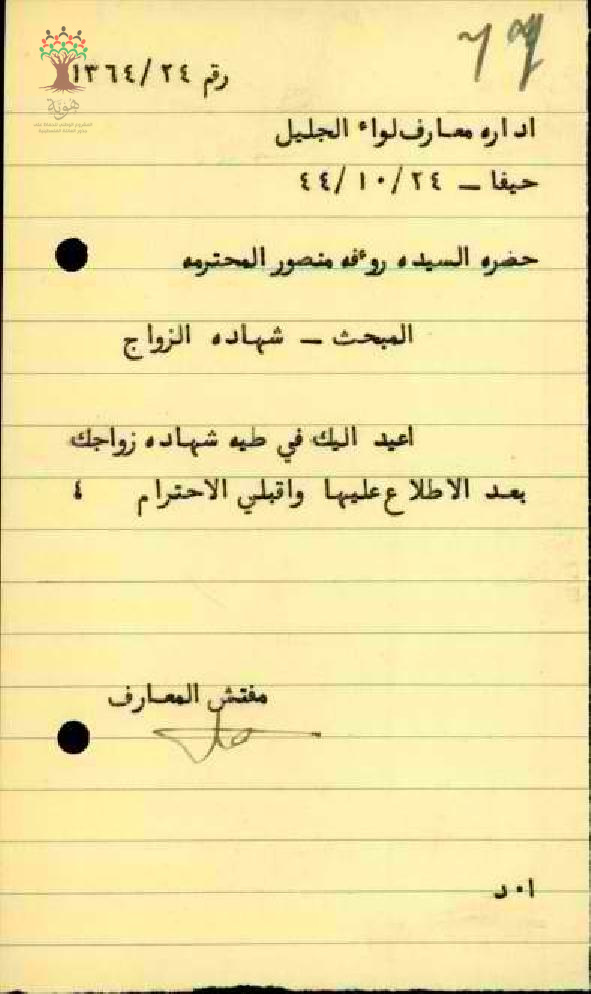 ٦٩
رقم ٢٤/١٣٦٤
هوية
اداره معارف لواء الجليل
حيفا – ٢٤/١٠/٤٤
حضره السيده روءفه منصور المحترمه
المبحث – شهاده الزواج
اعيد اليك في طيه شهاده زواجك
بعد الاطلاع عليها واقبلي الاحترام ٤
مفتش المعارف
ا٠د